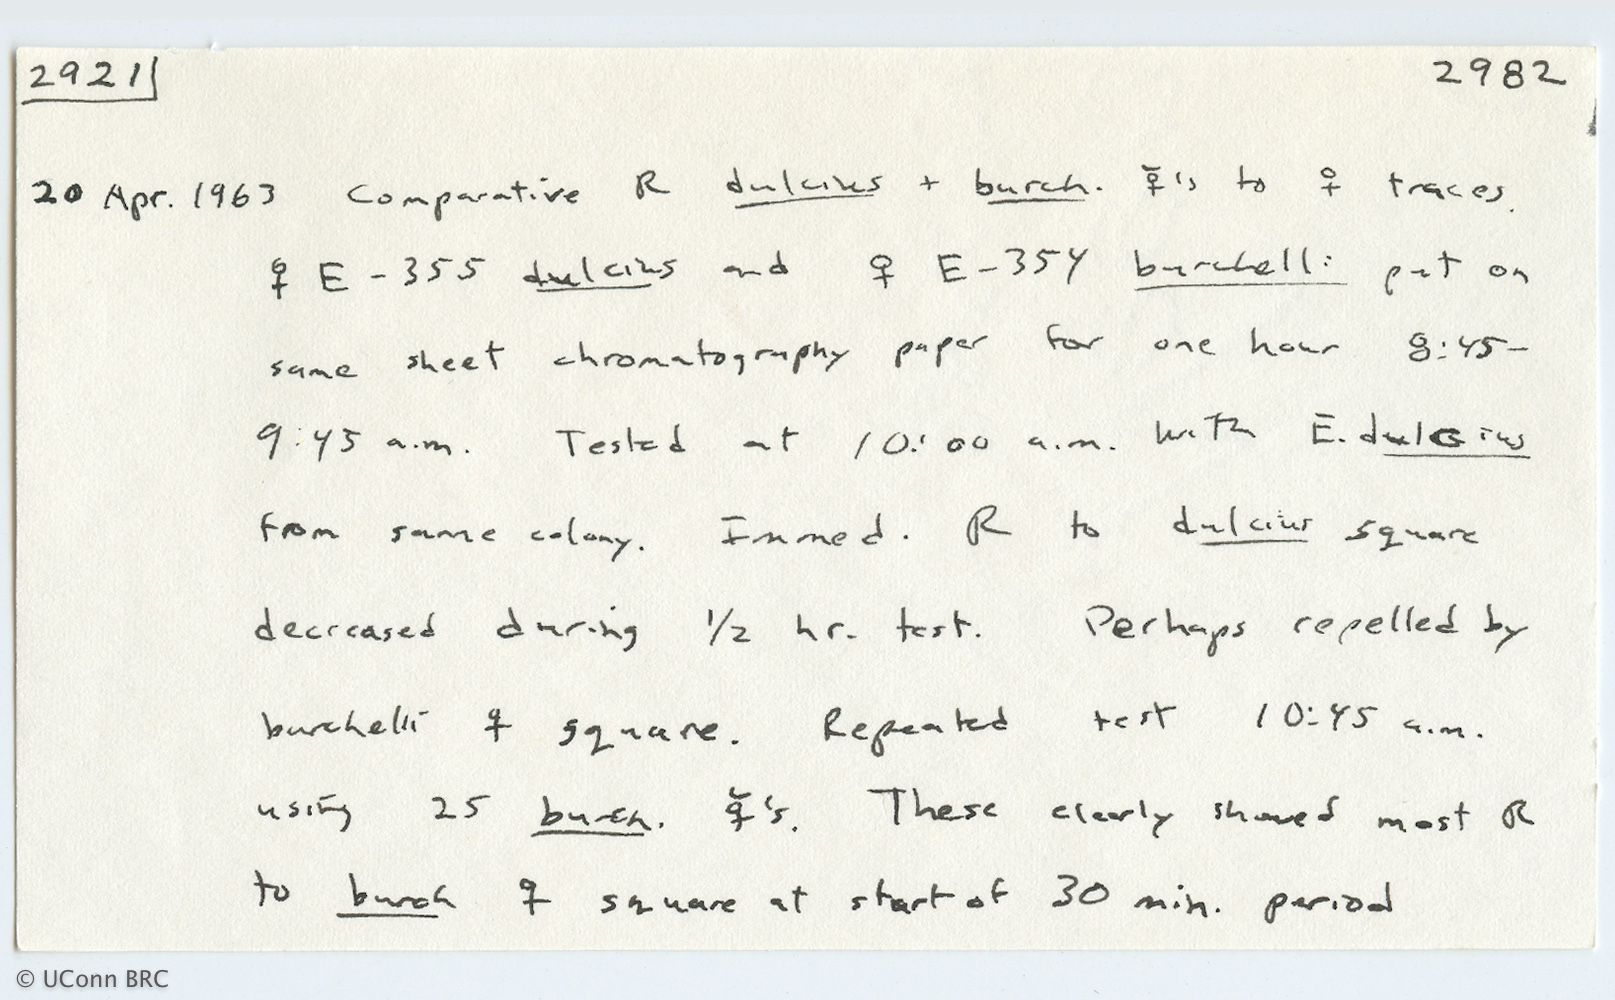 2921 2982
20 Apr. 1963 Comparative R dulcius + burch. ☿'s to ♀ traces.
♀ E-355 dulcius and ♀ E-354 burchelli put on
same sheet chromatography paper for one hour 8:45-
9:45 a.m. Tested at 10:00 a.m. with E. dulcius
from same colony. Immed. R to dulcius square
decreased during 1/2 hr. test. Perhaps repelled by
burchelli ♀ square. Repeated test 10:45 a.m.
using 25 burch. ☿'s. These clearly showed most R
to burch ♀ square at start of 30 min. period
© UConn BRC